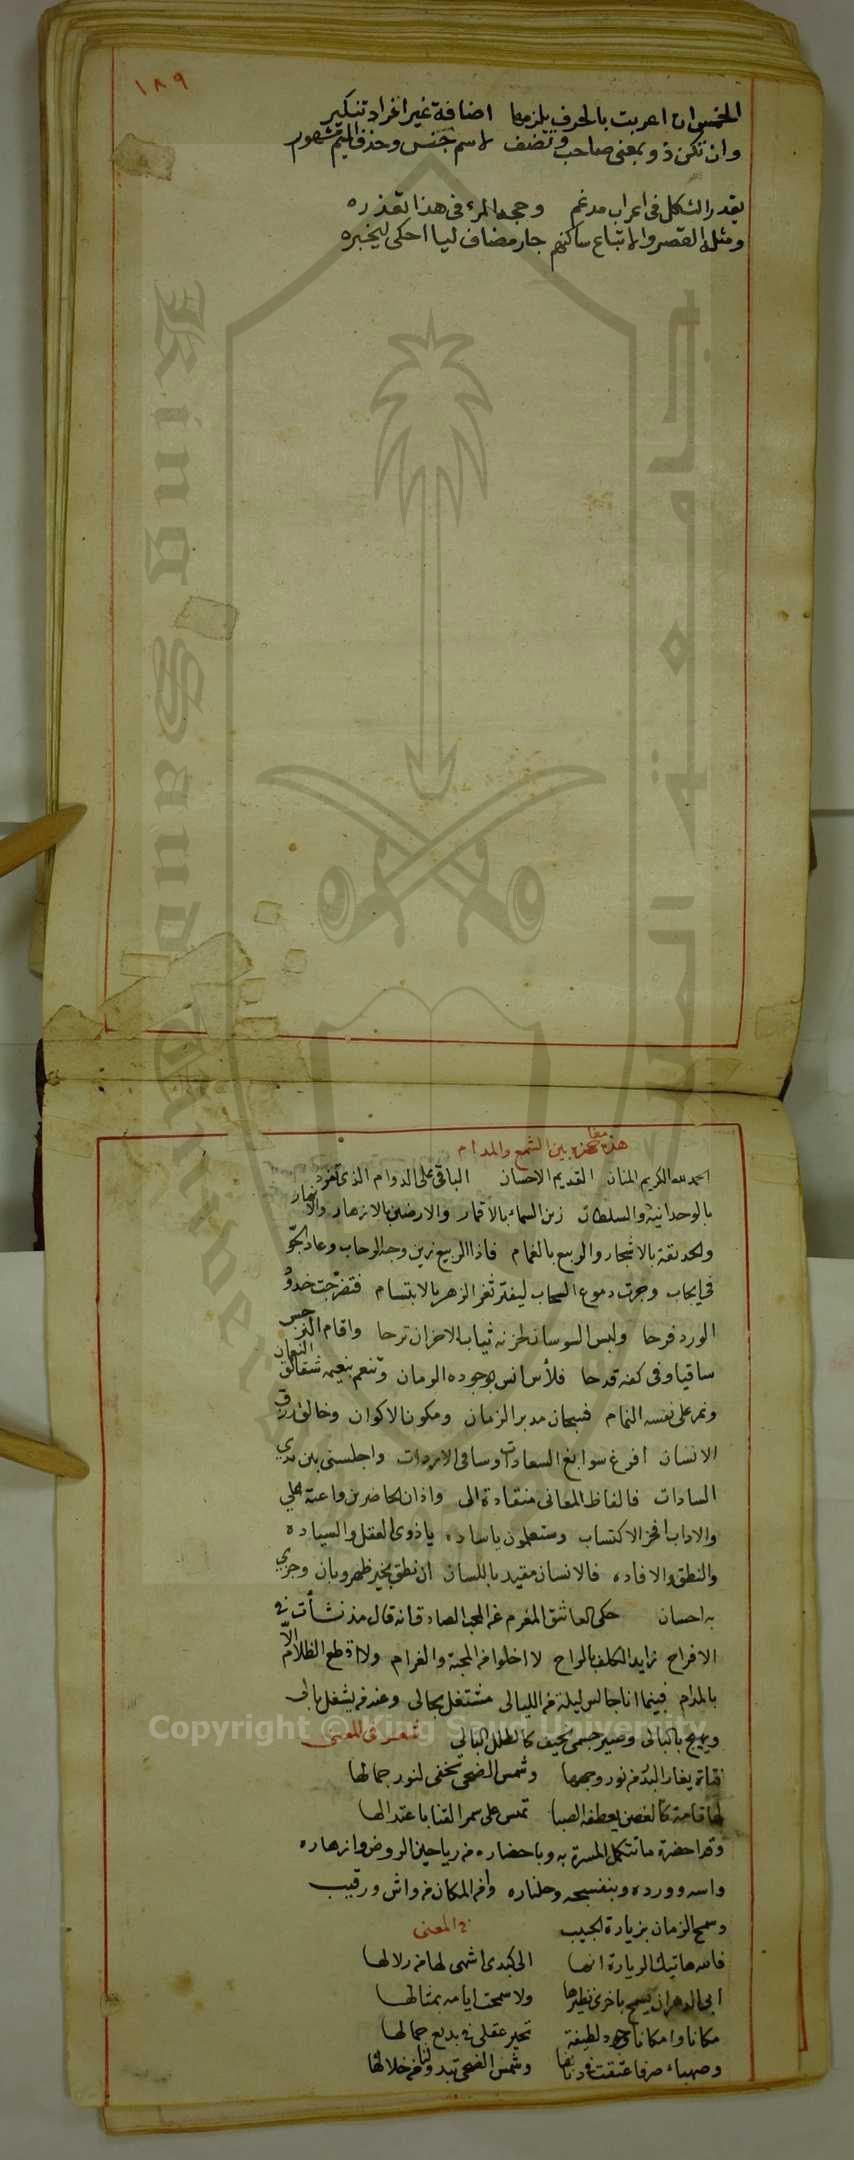 ١٨٩
الخمس ان اعربت بالحرف يلزمها اضافة غير افراد تنكير
وان تكن ذو بمعنى صاحب وتضف لاسم جنس وحذف الميم مشهور
يقدر الشكل في اعراب مدغم وحجه المرء في هذا تعذره
ومثله القصر والاتباع ساكنهم جار مضاف ليا احكى ليخبره
هذه مفاخرة بين الشمع والمدام
الحمد لله الكريم المنان القديم الاحسان الباقي على الدوام الذي تفرد
بالوحدانية والسلطان زين السماء بالاقمار والارضين بالازهار والانهار
والحديقة بالاشجار والربيع بالغمام فاذا الربيع زين وجه الرحاب وعاد الجو
في ايجاب وجرت دموع السحاب ليفتر ثغر الزهر بالابتسام فتضرجت خدود
الورد فرحا ولبس السوسان لحزنه ثياب الاحزان ترحا واقام النرجس
ساقيا وفي كفه قدحا فلأس انس بوجوده الومان وتنعم بنعيمه شقائق النعمان
ونم على نفسه النمام فسبحان مدبر الزمان ومكون الاكوان وخالق رزق
الانسان افرغ سوابغ السعادات وسافى الامردات واجلسني بين يدي
السادات فالفاظ المعاني منقادة الى واذان الحاضرين واعية على
والاداب افخر الاكتساب وستعلمون ياساده ياذوي العقل والسياده
والنطق والافاده فالانسان مقيد باللسان ان نطق بخير ظهر وبان وجزي
به احسان حكى العاشق المغرم عن المحب الصادق انه قال مذ نشأت في
الافراح تزايد الكلف بالراح لا اخلوا من المحبة والغرام ولا اقطع الظلام الا
بالمدام فبينما انا جالس ليلة من الليالي مشتغل بحالي وعند من يشغل بالي
ويهيج بالبالي وصير جسمي نحيف كالطلل البالي شعر في المعنى
فتاة يغار البدر من نور وجهها وشمس الضحى تخفى لنور جمالها
لها قامة كالغصن يعطفه الصبا تميس على سمر القنا باعتدالها
وقد احضرت ما تتكمل المسرة به وباحضاره من رياحين الروض وازهاره
واسه وورده وبنفسجه وجلناره وامن المكان من واش ورقيب
وسمح الزمان بزيارة الحبيب في المعنى
فلله هاتيك الزيارة انها الى كبدي اشهى لها من زلالها
ابى الدهر ان يسمح باخرى نظيرها ولا سمحت ايامه بمثالها
مكانا وامكانا وخود لطيفة تحير عقلي في بديع جمالها
وصهباء صرفا عتقت في دنانها وشمس الضحى تبدو لنا من خلالها
Copyright © King Saud University
King Saud University
جامعة الملك